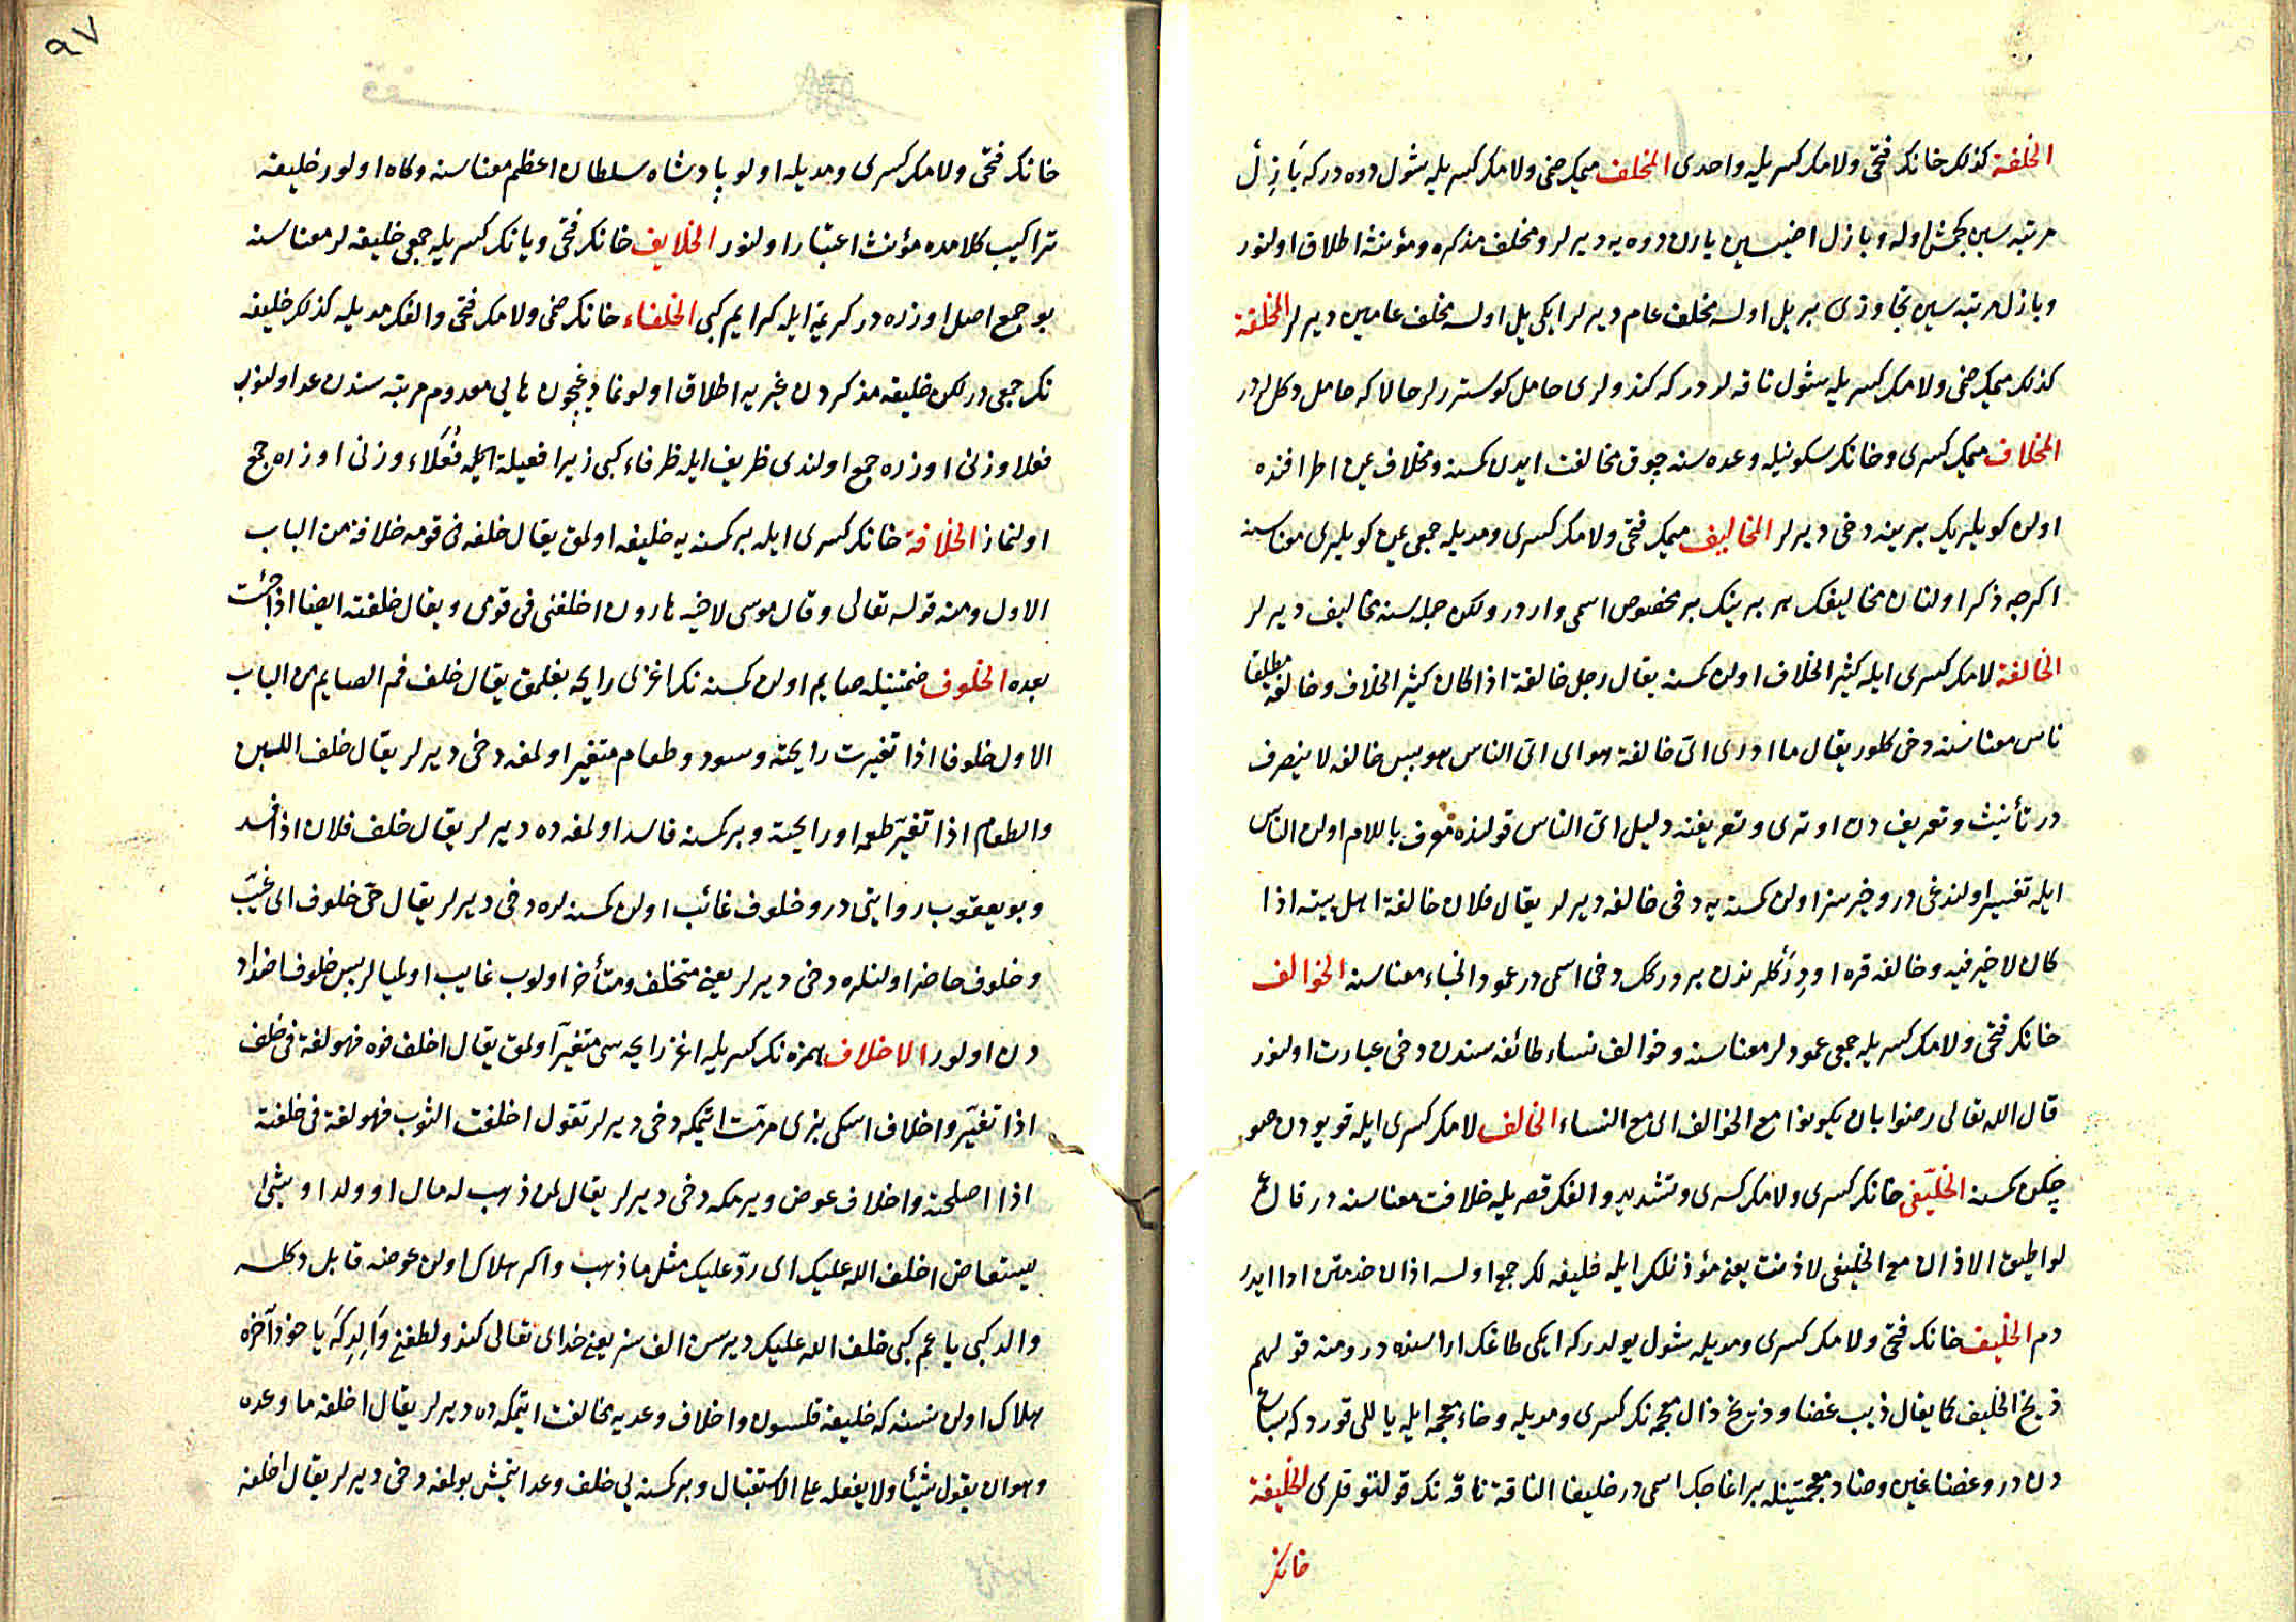 الخلفة كذلك خانك فتحى ولامك كسريله واحدى المخلف ميمك ضمى ولامك كسريله شول دوه دركه بازل
مرتبه سين كچمش اوله وبازل اضيسين يارن دوه يه ديرلر ومخلف مذكره ومؤنثه اطلاق اولنور
وبازل مرتبه سين تجاوزى بر يل اولسه مخلف عام ديرلر ايكى يل اولسه مخلف عامين ديرلر المخلفة
كذلك ميمك ضمى ولامك كسريله شول ناقه لردركه كندولرى حامل كوستررلر حالا كه حامل دكللردر
المخلاف ميمك كسرى وخانك سكونيله وعده سنه چوق مخالفت ايدن كمسنه ومخلاف يمن اطرافنده
اولن كويلريك برينه دخى ديرلر المخاليف ميمك فتحى ولامك كسرى ومديله جمعى يمن كويلرى معناسنه
اكرچه ذكر اولنان مخاليفك هر برينك بر مخصوص اسمى واردر ولكن جمله سنه مخاليف ديرلر
الخالفة لامك كسرى ايله كثير الخلاف اولن كمسنه يقال رجل خالفة اذا كان كثير الخلاف وخالفه مطلقا
ناس معناسنه دخى كلور يقال ما ادرى اى خالفة هو اى اى الناس هو بس خالفه لا ينصرف
در تأنيث وتعريف دن اوترى وتعريفنه دليل اى الناس قولنده معرف باللام اولن الناس
ايله تفسير اولندغى در وخيرسز اولن كمسنه يه دخى خالفه ديرلر يقال فلان خالفة اهل بيته اذا
كان لا خير فيه وخالفه قره اودركلرندن بر دركك دخى اسمى در عمود الخباء معناسنه الخوالف
خانك فتحى ولامك كسريله جمعى عمودلر معناسنه وخوالف نساء طائفه سندن دخى عبارت اولنور
قال الله تعالى رضوا بان يكونوا مع الخوالف اى مع النساء الخالف لامك كسرى ايله قويودن صو
چكن كمسنه الخليفى خانك كسرى ولامك كسرى وتشديد والفك قصريله خلافت معناسنه در قال ع
لو اطيق الاذان مع الخليفى لاذنت يعنى مؤذنلكى ايله خليفه لك جمع اولسه اذان خدمتن ادا ايدر
دم الخليف خانك فتحى ولامك كسرى ومديله شول يولدركه ايكى طاغك اراسنده در ومنه قولهم
ذيخ الخليف كما يقال ذيب غضا وذيخ ذال معجمه نك كسرى ومديله وخاء معجمه ايله ياللى قورد كه سباع
دن در وغضا غين وضاد معجمتينله بر اغاجك اسمى در خليفا الناقة ناقه نك قولتوقلرى الخليفة
خانك
٩٧
خانك فتحى ولامك كسرى ومديله اولو پادشاه سلطان اعظم معناسنه وكاه اولور خليفه
تراكيب كلامده مؤنث اعتبار اولنور الخلايف خانك فتحى ويانك كسريله جمعى خليفه لر معناسنه
بو جمع اصل اوزره در كريمة ايله كرايم كبى الخلفاء خانك ضمى ولامك فتحى والفك مديله كذلك خليفه
نك جمعى در لكن خليفه مذكردن غيريه اطلاق اولونمادغيچون هايى معدوم مرتبه سندن عد اولنوب
فعلا وزنى اوزره جمع اولندى ظريف ايله ظرفاء كبى زيرا فعيلة ايله فعلاء وزنى اوزره جمع
اولنماز الخلافة خانك كسرى ايله بر كمسنه يه خليفه اولمق يقال خلفه فى قومه خلافة من الباب
الاول ومنه قوله تعالى وقال موسى لاخيه هارون اخلفنى فى قومى ويقال خلفته ايضا اذا جئت
بعده الخلوف ضمتينله صايم اولن كمسنه نك اغزى رايحه بغلمق يقال خلف فم الصايم من الباب
الاول خلوفا اذا تغيرت رايحته وسود وطعام متغير اولمغه دخى ديرلر يقال خلف اللبن
والطعام اذا تغير طعمه او رايحته وبر كمسنه فاسد اولمغه ده ديرلر يقال خلف فلان اذا فسد
وبو يعقوب روايتى در وخلوف غائب اولن كمسنه لره دخى ديرلر يقال حى خلوف اى غيب
وخلوف حاضر اولنلره دخى ديرلر يعنى متخلف ومتأخر اولوب غايب اولميالر بس خلوف اضداد
دن اولور الاخلاف همزه نك كسريله اغز رايحه سى متغير اولمق يقال اخلف فوه فهو لغة فى خلف
اذا تغير واخلاف اسكى بزى مرمت ايتمكه دخى ديرلر تقول اخلفت الثوب فهو لغة فى خلفته
اذا اصلحته واخلاف عوض ويرمكه دخى ديرلر يقال لمن ذهب له مال او ولد او شئ
يستعاض اخلف الله عليك اى رد عليك مثل ما ذهب واكر هلاك اولن عوضه قابل دكلسه
والد كبى يا عم كبى خلف الله عليك ديرسن الف سز يعنى خداى تعالى كندو لطفنى والدكه يا خود آخره
هلاك اولن نسنه كه خليفه قلسون واخلاف وعديه مخالفت ايتمكه ده ديرلر يقال اخلفه ما وعده
وهو ان يقول شيئا ولا يفعله على الاستقبال وبر كمسنه يى خلف وعد ايتمش بولمغه دخى ديرلر يقال اخلفه